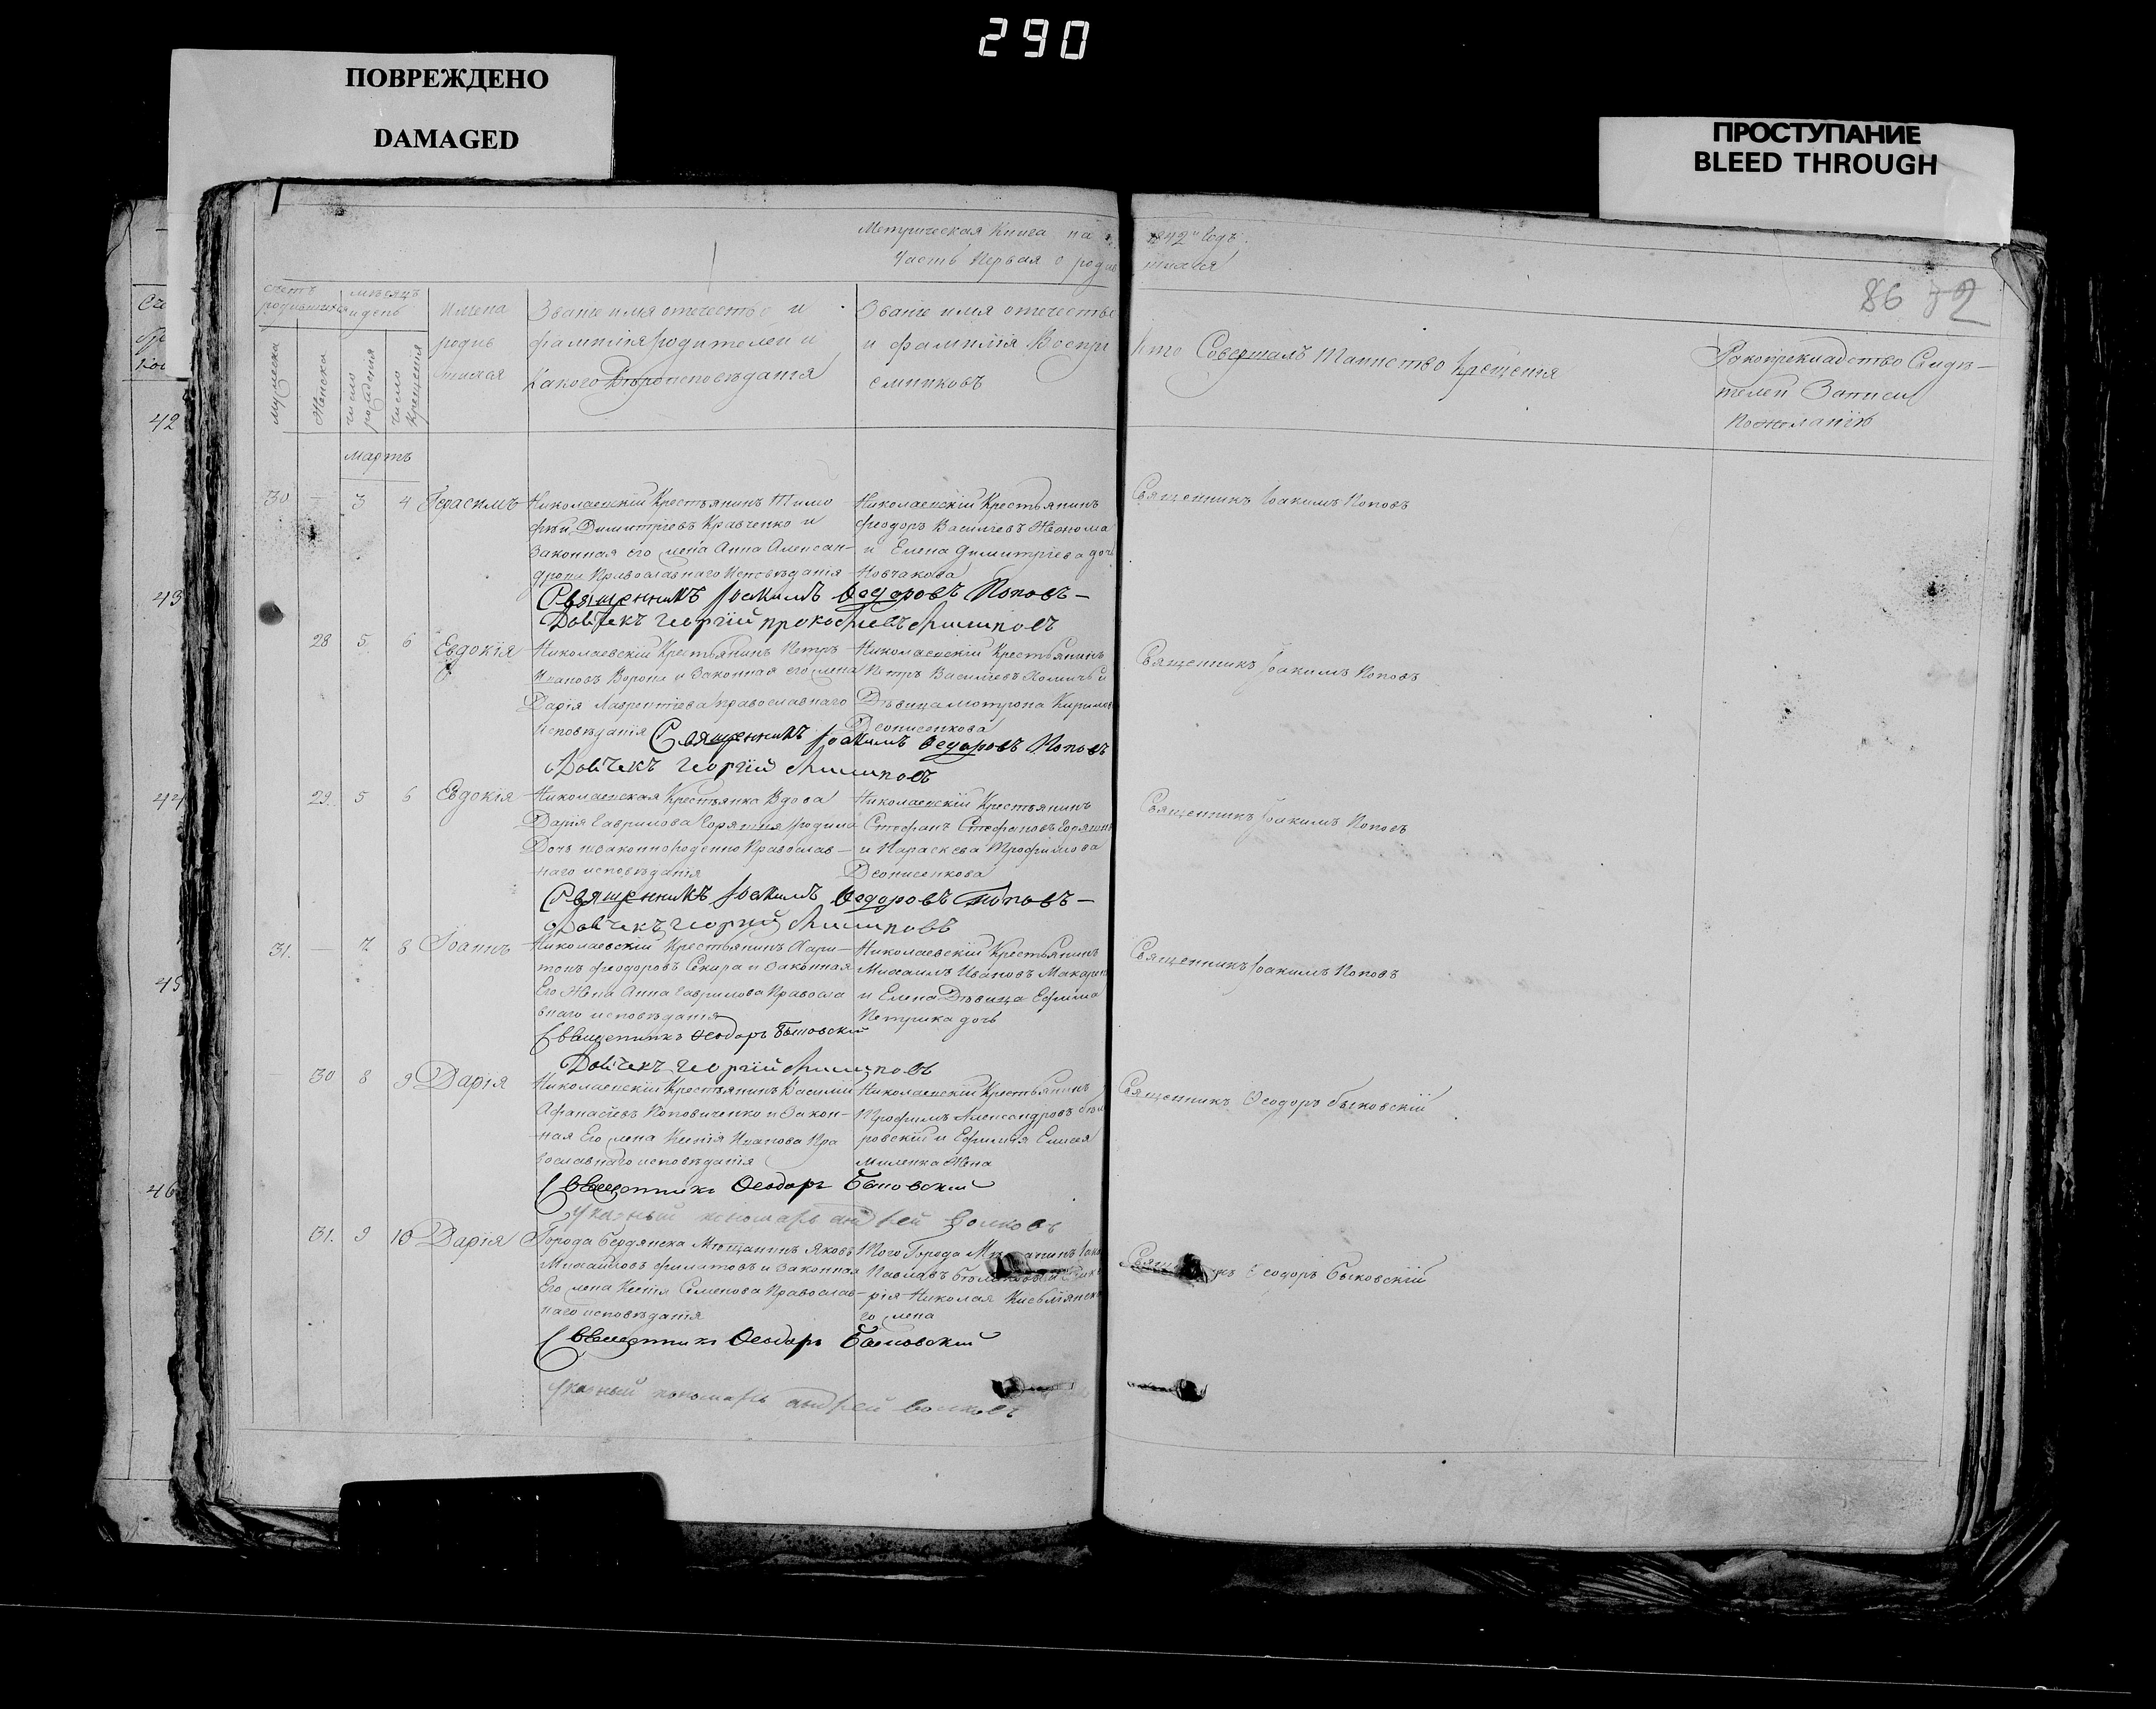 290
ПОВРЕЖДЕНО
DAMAGED
ПРОСТУПАНИЕ
BLEED THROUGH
Метрическая Книга на 1842й Годъ.
Часть Первая о родившихся
86 92
счетъ родившихся
мѣсяцъ и день
Имена родившихся
Званіе имя отечество и фамилія родителей и Какого Вѣроисповѣданія
Званіе имя отечество и фамилія Воспріемниковъ
Кто Совершалъ Таинство Крещенія
Рукоприкладство Свидѣтелей Записи По желанію
мужеска
Женска
число рожденія
число Крещенія
мартъ
30 — 3 4 Герасимъ
Николаевскій Крестьянинъ Тимо
фѣй Димитріевъ Кравченко и
Законная его жена Анна Алексан-
дрова Православнаго Исповѣданія
Николаевскій Крестьянинъ
Феодоръ Васильевъ
и Елена Димитріева дочь
Священникъ Іоакимъ Поповъ
Священникъ Іоакимъ Ѳедоровъ Поповъ —
Дьячекъ Георгій Прокофьевъ Филиповъ
28 5 6 Евдокія
Николаевскій Крестьянинъ Петръ
Ивановъ Ворона и Законная его жена
Дарія Лаврентіева православнаго
исповѣданія
Николаевскій Крестьянинъ
Петръ Васильевъ
Дѣвица Мотрона
Деонисенкова
Священникъ Іоакимъ Поповъ
Священникъ Іоакимъ Ѳедоровъ Поповъ
Дьячекъ Георгій Филиповъ
29 5 6 Евдокія
Николаевская Крестьянка Вдова
Дарія Гаврилова Горяшня родила
Дочь незаконнорожденно Православ-
наго исповѣданія
Николаевскій Крестьянинъ
Стефанъ Стефановъ
и Параскева Трофимова
Деонисенкова
Священникъ Іоакимъ Поповъ
Священникъ Іоакимъ Ѳедоровъ Поповъ —
Дьячекъ Георгій Филиповъ
31. — 7 8 Іоаннъ
Николаевскій Крестьянинъ Хари-
тонъ Феодоровъ Секира и Законная
Его Жена Анна Гаврилова Правосла
внаго исповѣданія
Николаевскій Крестьянинъ
Михаилъ Ивановъ
и Елена Дѣвица Ефима
Петрика дочь
Священникъ Іоакимъ Поповъ
Священникъ Ѳеодоръ Быковскій
Дьячекъ Георгій Филиповъ
30 8 9 Дарія
Николаевскій Крестьянинъ Василій
Афанасіевъ Поповиченко и Закон-
ная Его жена Ксенія Иванова Пра
вославнаго исповѣданія
Николаевскій Крестьянинъ
Трофимъ Александровъ
ровскій и Ефимія Елисея
Миленка Жена
Священникъ Ѳеодоръ Быковскій
Священникъ Ѳеодоръ Быковскій
Указный пономарь андрей Волковъ
31. 9 10 Дарія
Города Бердянска Мѣщанинъ Яковъ
Михайловъ Филатовъ и Законная
Его жена Ксенія Семенова Православ-
наго исповѣданія
Того Города
Павловъ
рія Николая
го жена
Священникъ Ѳеодоръ Быковскій
Священникъ Ѳеодоръ Быковскій
Указный пономарь андрей Волковъ
42
43
44
45
46